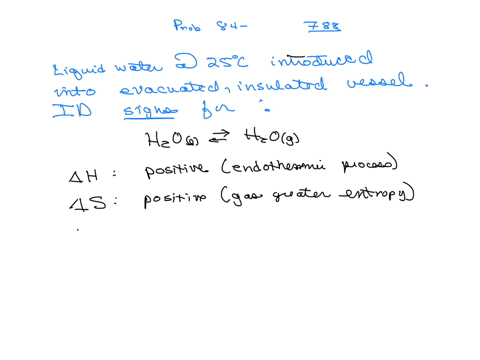 Prob 84- 788
Liquid water @ 25°C introduced
into evacuated, insulated vessel.
ID signs for :
H2O(l) ⇄ H2O(g)
ΔH : positive (endothermic process)
ΔS : positive (gas greater entropy)